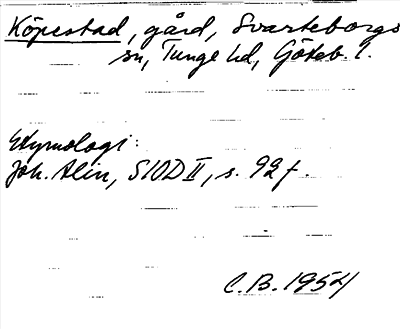 Köpestad, gård, Svarteborgs
sn, Tunge hd, Göteb. l.
Etymologi:
Joh. Alin, SIOD II, s. 92 f.
C.B. 1954